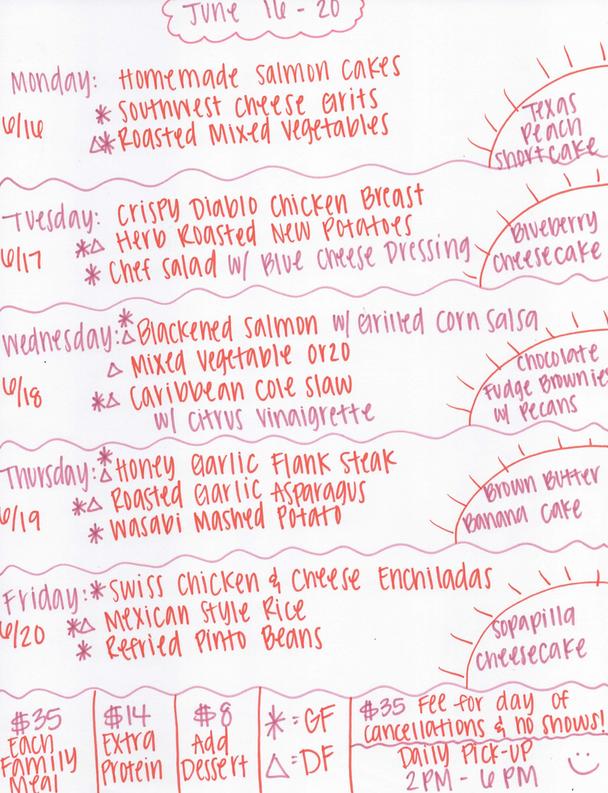 June 16 - 20
Monday: Homemade Salmon Cakes
6/16 * Southwest Cheese Grits
△* Roasted Mixed Vegetables
Texas
Peach
Shortcake
Tuesday: Crispy Diablo Chicken Breast
6/17 *△ Herb Roasted New Potatoes
* Chef Salad w/ Blue Cheese Dressing
Blueberry
Cheesecake
Wednesday: *△ Blackened Salmon w/ Grilled Corn Salsa
6/18 △ Mixed Vegetable Orzo
*△ Caribbean Cole Slaw
w/ Citrus Vinaigrette
Chocolate
Fudge Brownies
w/ Pecans
Thursday: *△ Honey Garlic Flank Steak
6/19 *△ Roasted Garlic Asparagus
* Wasabi Mashed Potato
Brown Butter
Banana Cake
Friday: * Swiss Chicken & Cheese Enchiladas
6/20 *△ Mexican Style Rice
* Refried Pinto Beans
Sopapilla
Cheesecake
$35
Each
Family
Meal
$14
Extra
Protein
$8
Add
Dessert
* = GF
△ = DF
$35 Fee for day of
cancellations & no shows!
Daily Pick-up
2PM - 6PM